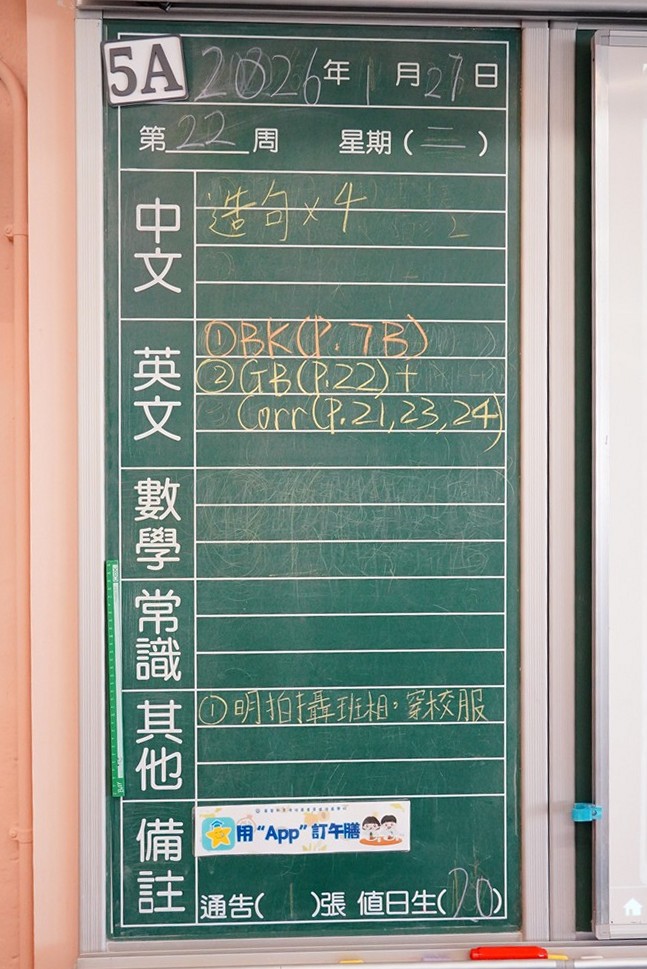 5A
2026年1月27日
第22周 星期(二)
中文
造句×4
英文
①BK(P.7B)
②GB(P.22)+
Corr(P.21,23,24)
數學
常識
其他
①明拍攝班相,穿校服
備註
用“App”訂午膳
通告( )張 值日生(20)